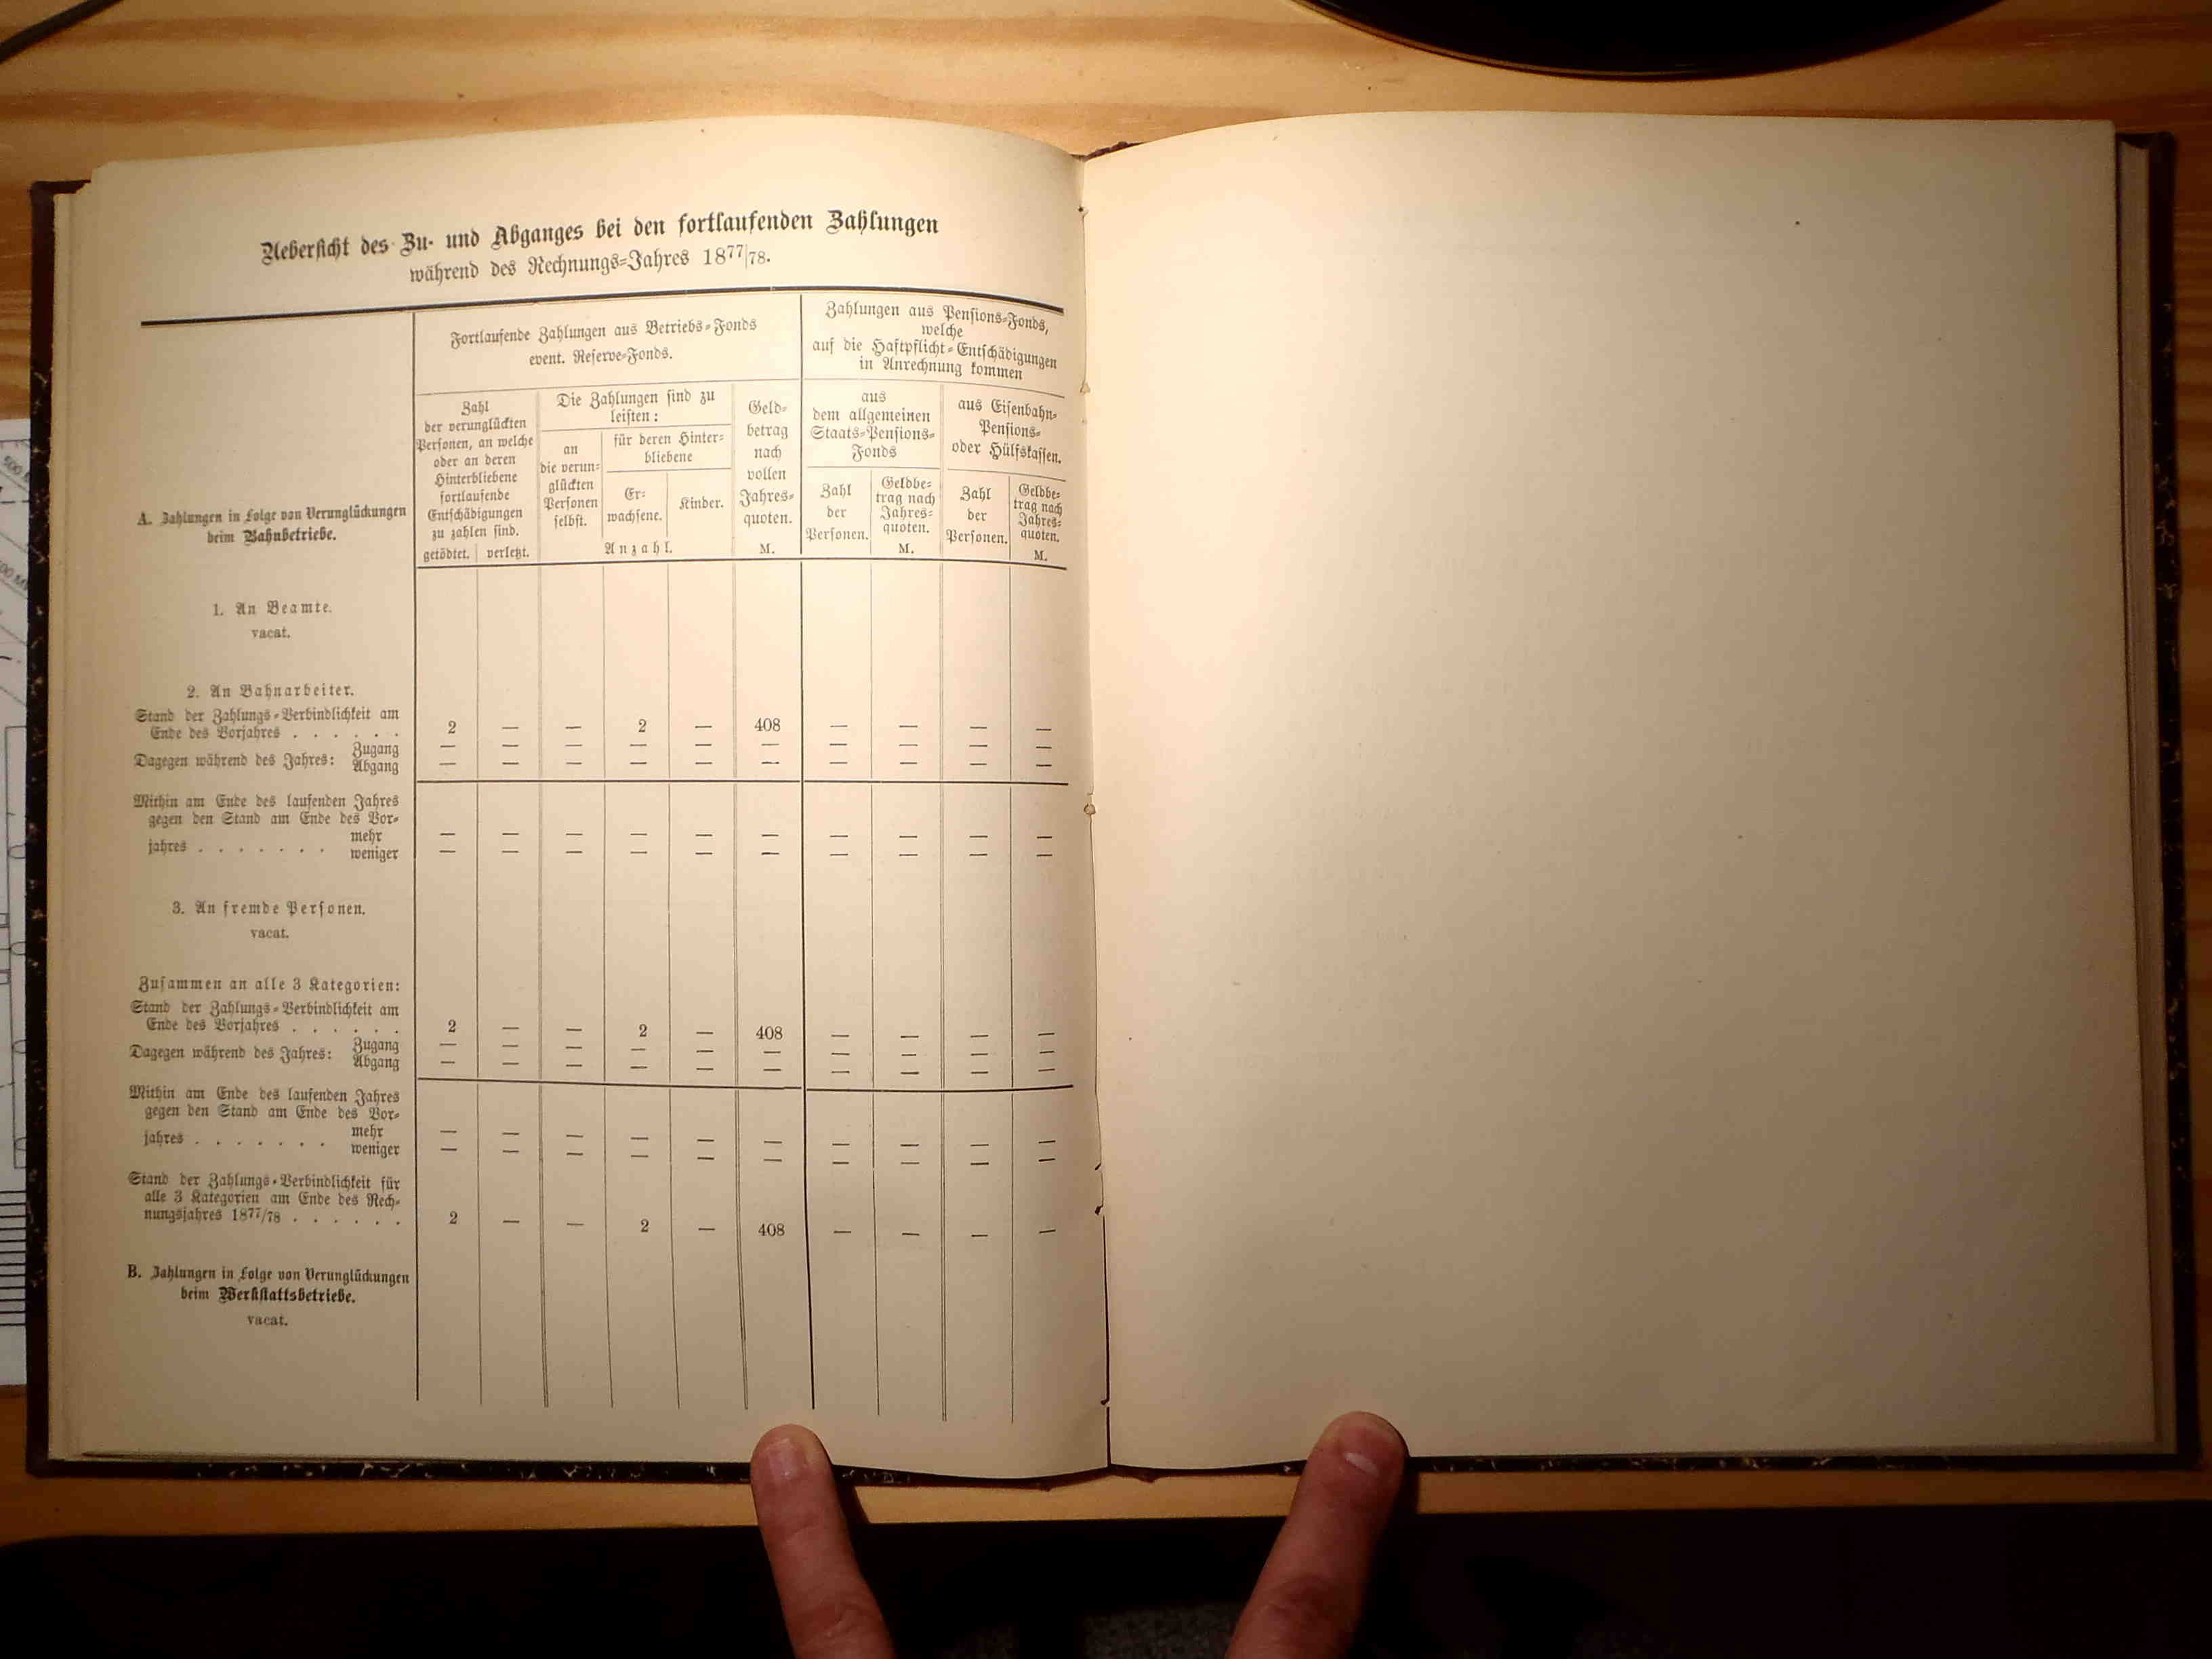 Uebersicht des Zu- und Abganges bei den fortlaufenden Zahlungen
während des Rechnungs-Jahres 1877/78.
Fortlaufende Zahlungen aus Betriebs-Fonds
event. Reserve-Fonds.
Zahlungen aus Pensions-Fonds,
welche
auf die Haftpflicht-Entschädigungen
in Anrechnung kommen
Zahl
der verunglückten
Personen, an welche
oder an deren
Hinterbliebene
fortlaufende
Entschädigungen
zu zahlen sind.
getödtet. verletzt.
Die Zahlungen sind zu
leisten:
an
die verun-
glückten
Personen
selbst.
für deren Hinter-
bliebene
Er-
wachsene.
Kinder.
Anzahl.
Geld-
betrag
nach
vollen
Jahres-
quoten.
M.
aus
dem allgemeinen
Staats-Pensions-
Fonds
Zahl
der
Personen.
Geldbe-
trag nach
Jahres-
quoten.
M.
aus Eisenbahn-
Pensions-
oder Hülfskassen.
Zahl
der
Personen.
Geldbe-
trag nach
Jahres-
quoten.
M.
A. Zahlungen in Folge von Verunglückungen
beim Bahnbetriebe.
1. An Beamte.
vacat.
2. An Bahnarbeiter.
Stand der Zahlungs-Verbindlichkeit am
Ende des Vorjahres . . . . . . 2 — — 2 — 408 — — — —
Zugang — — — — — — — — — —
Dagegen während des Jahres:
Abgang — — — — — — — — — —
Mithin am Ende des laufenden Jahres
gegen den Stand am Ende des Vor-
mehr — — — — — — — — — —
jahres . . . . . . .
weniger — — — — — — — — — —
3. An fremde Personen.
vacat.
Zusammen an alle 3 Kategorien:
Stand der Zahlungs-Verbindlichkeit am
Ende des Vorjahres . . . . . . 2 — — 2 — 408 — — — —
Zugang — — — — — — — — — —
Dagegen während des Jahres:
Abgang — — — — — — — — — —
Mithin am Ende des laufenden Jahres
gegen den Stand am Ende des Vor-
mehr — — — — — — — — — —
jahres . . . . . . .
weniger — — — — — — — — — —
Stand der Zahlungs-Verbindlichkeit für
alle 3 Kategorien am Ende des Rech-
nungsjahres 1877/78 . . . . . . 2 — — 2 — 408 — — — —
B. Zahlungen in Folge von Verunglückungen
beim Werkstattsbetriebe.
vacat.